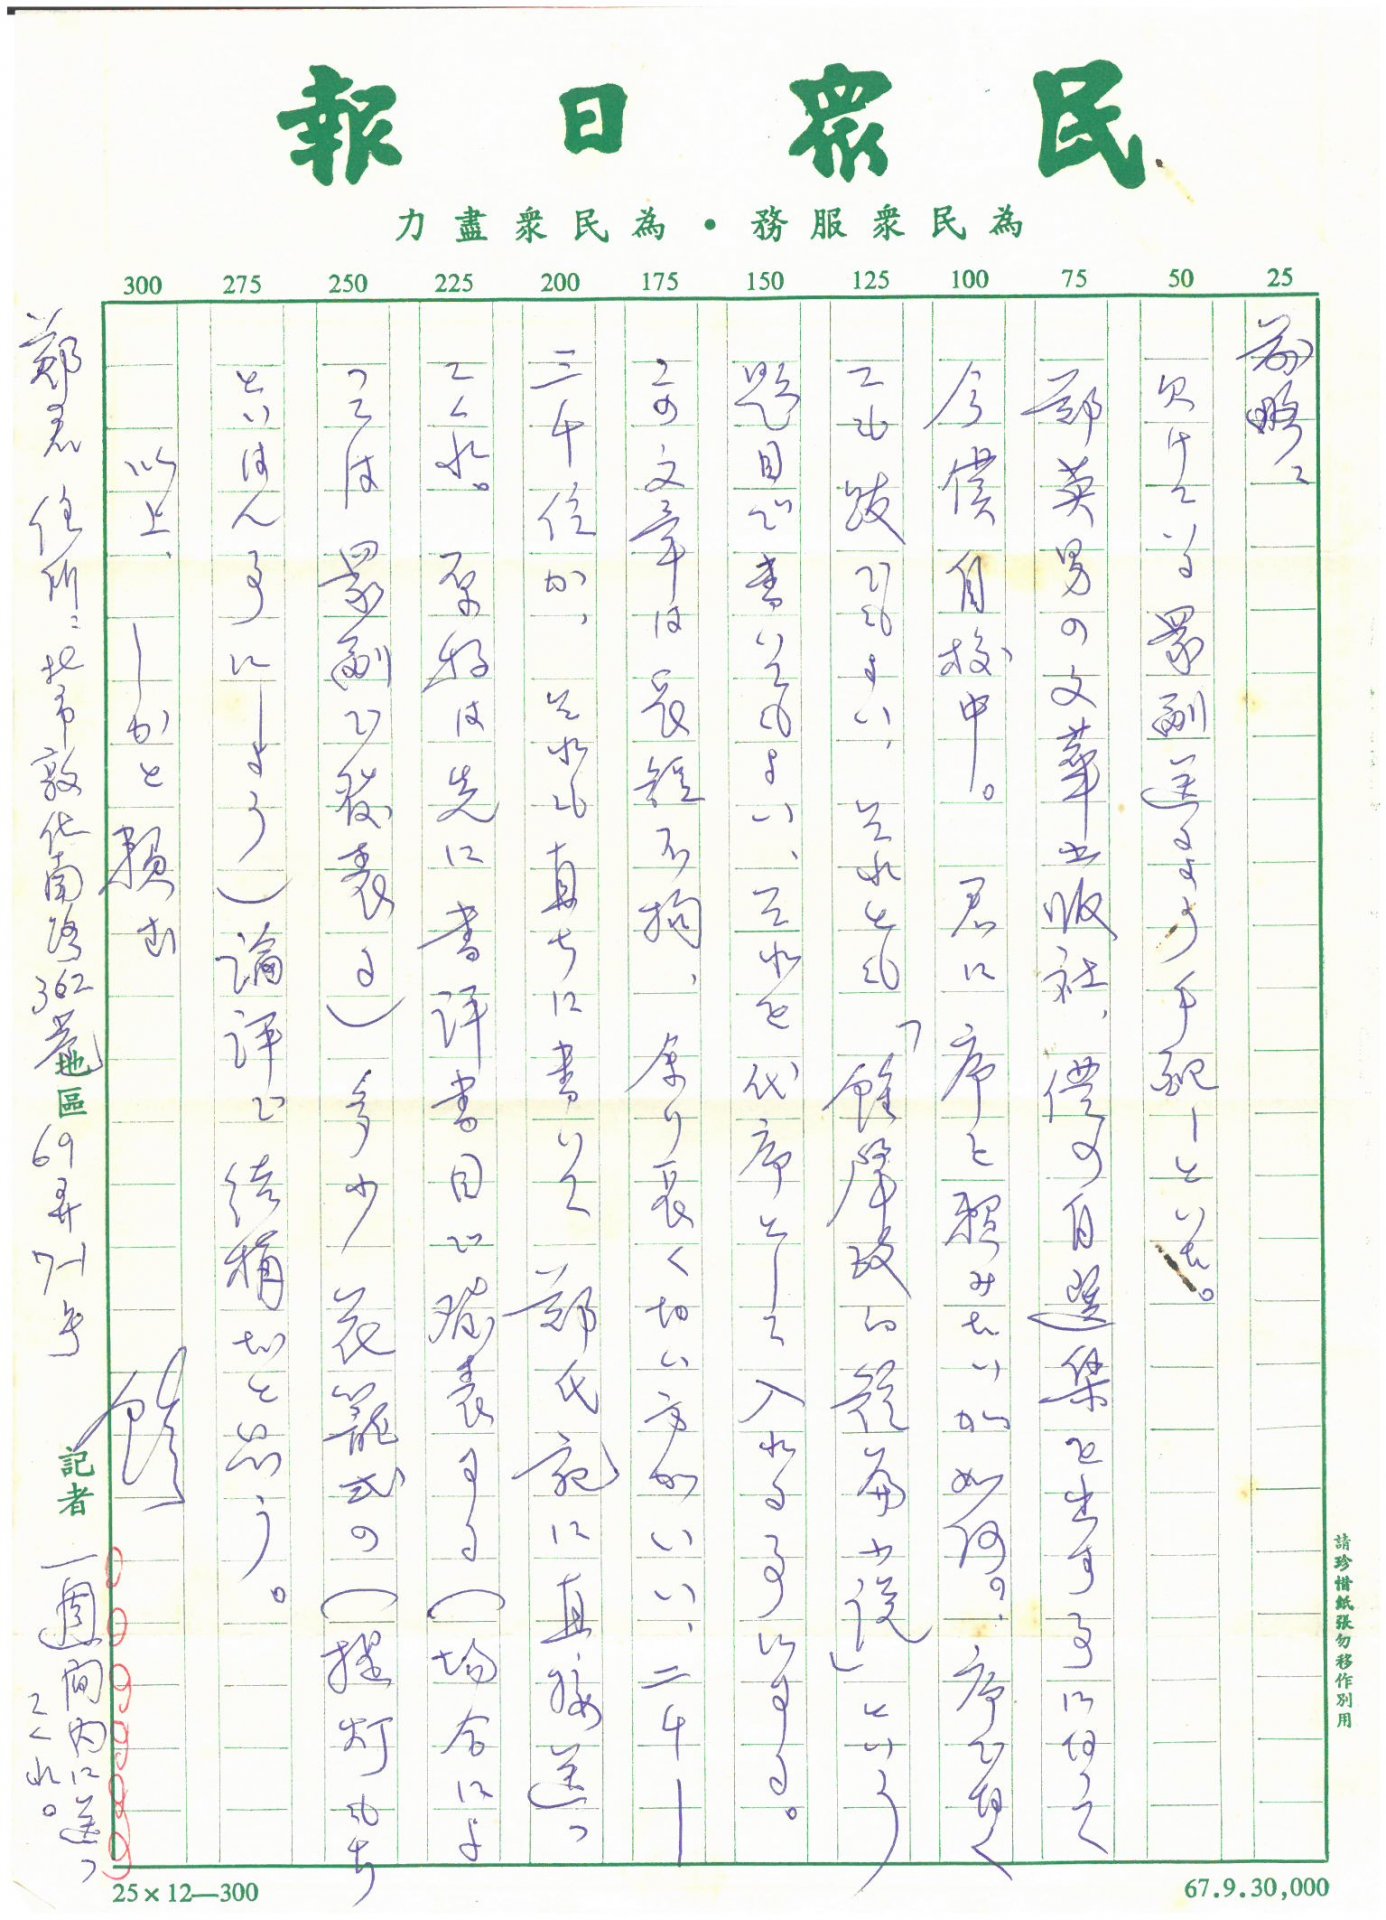 民眾日報
為民眾服務・為民眾盡力
25 50 75 100 125 150 175 200 225 250 275 300
前略、
欠けている眾副送るよう手配しといた。
鄭英男の文華出版社、僕の自選集を出す事になって
今僕自校中。君に序を頼みたいが如何。序でなく
ても跋でもよい、それとも「鍾肇政的短篇小說」という
題目で書いてもよい、それを代序として入れる事にする。
この文章は長短不拘、余り長くない方がいい、二千—
三千位か、それも直ちに書いて鄭氏宛に直接送っ
てくれ。原稿は先に書評書目で發表する(場合によ
っては眾副で發表する)多少花籠式の(提灯もち
といはん事にしよう)論評で結構だと思う。
以上、しかと頼む
鄭君 住所:北市敦化南路362巷
地區
69弄7-1号
鍾
記者
一週間内に送っ
てくれ。
請珍惜紙張勿移作別用
25×12—300
67.9.30,000